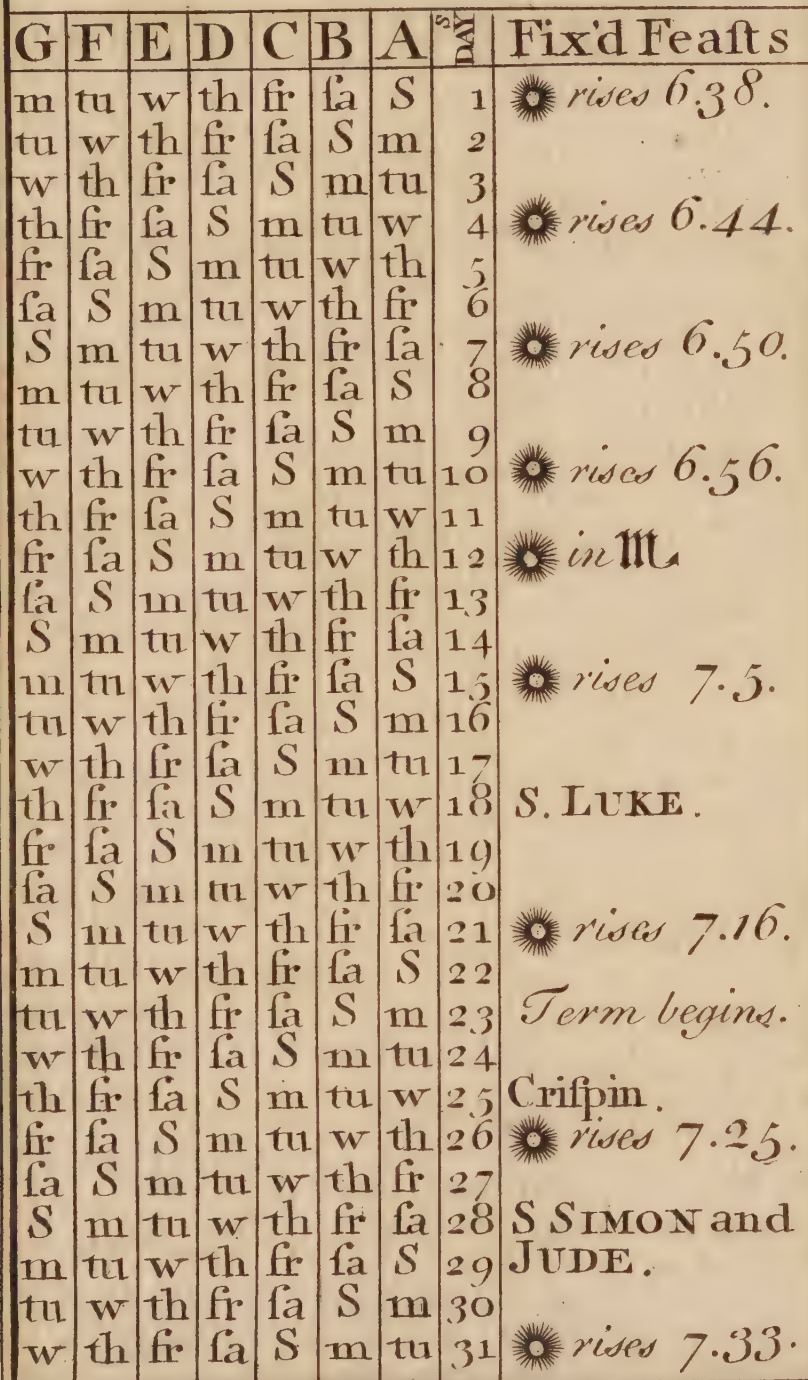 G F E D C B A S DAY Fix'd Feaſts
m tu w th fr ſa S 1 rises 6.38.
tu w th fr ſa S m 2
w th fr ſa S m tu 3
th fr ſa S m tu w 4 rises 6.44.
fr ſa S m tu w th 5
ſa S m tu w th fr 6
S m tu w th fr ſa 7 rises 6.50.
m tu w th fr ſa S 8
tu w th fr ſa S m 9
w th fr ſa S m tu 10 rises 6.56.
th fr ſa S m tu w 11
fr ſa S m tu w th 12 in ♏
ſa S m tu w th fr 13
S m tu w th fr ſa 14
m tu w th fr ſa S 15 rises 7.5.
tu w th fr ſa S m 16
w th fr ſa S m tu 17
th fr ſa S m tu w 18 S. LUKE.
fr ſa S m tu w th 19
ſa S m tu w th fr 20
S m tu w th fr ſa 21 rises 7.16.
m tu w th fr ſa S 22
tu w th fr ſa S m 23 Term begins.
w th fr ſa S m tu 24
th fr ſa S m tu w 25 Criſpin.
fr ſa S m tu w th 26 rises 7.25.
ſa S m tu w th fr 27
S m tu w th fr ſa 28 S SIMON and
m tu w th fr ſa S 29 JUDE.
tu w th fr ſa S m 30
w th fr ſa S m tu 31 rises 7.33.